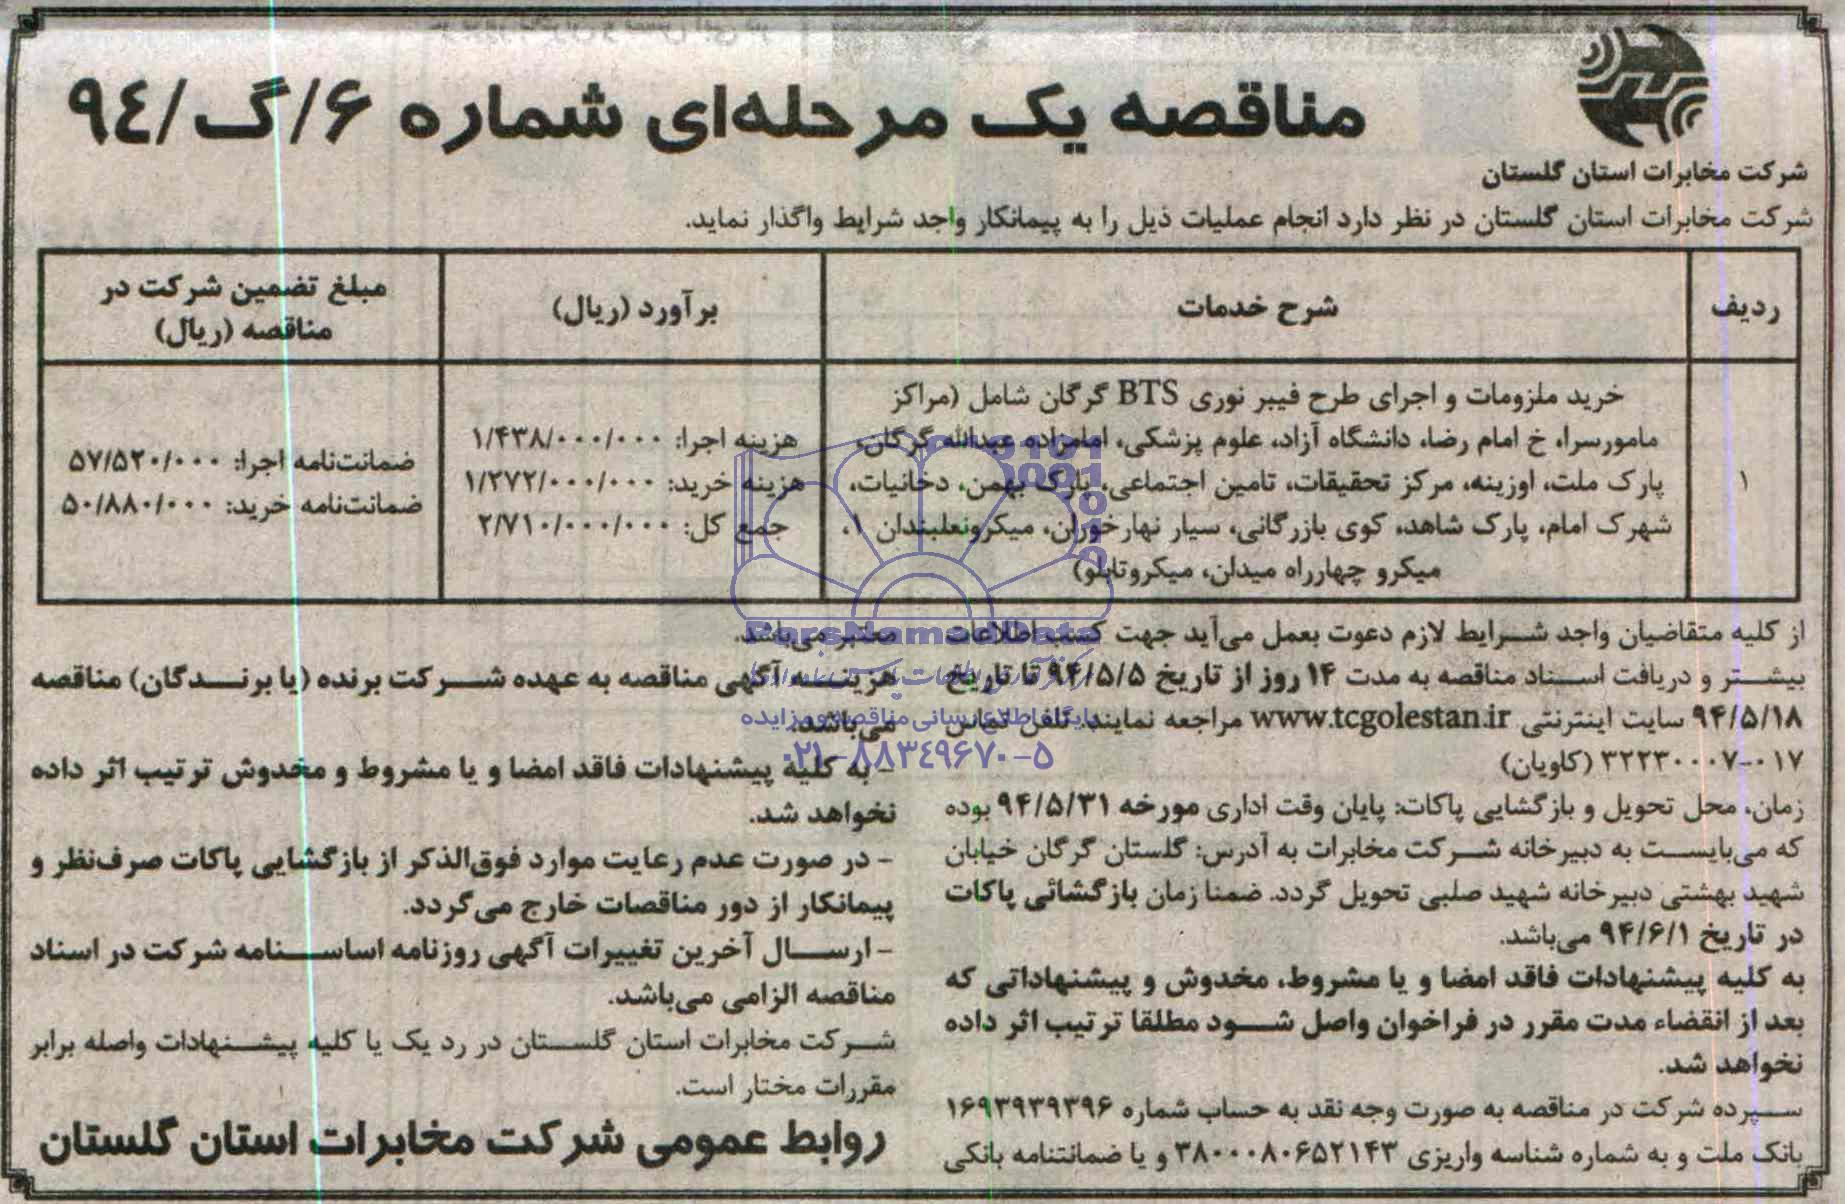 مناقصه یک مرحله‌ای شماره ۶/گ/۹۴
شرکت مخابرات استان گلستان
شرکت مخابرات استان گلستان در نظر دارد انجام عملیات ذیل را به پیمانکار واجد شرایط واگذار نماید.
ردیف
شرح خدمات
برآورد (ریال)
مبلغ تضمین شرکت در
مناقصه (ریال)
۱
خرید ملزومات و اجرای طرح فیبر نوری BTS گرگان شامل (مراکز
مامورسرا، خ امام رضا، دانشگاه آزاد، علوم پزشکی، امامزاده عبدالله گرگان،
پارک ملت، اوزینه، مرکز تحقیقات، تامین اجتماعی، پارک بهمن، دخانیات،
شهرک امام، پارک شاهد، کوی بازرگانی، سیار نهارخوران، میکرونعلبندان ۱،
میکرو چهارراه میدان، میکروتابلو)
هزینه اجرا: ۱/۴۳۸/۰۰۰/۰۰۰
هزینه خرید: ۱/۲۷۲/۰۰۰/۰۰۰
جمع کل: ۲/۷۱۰/۰۰۰/۰۰۰
ضمانت‌نامه اجرا: ۵۷/۵۲۰/۰۰۰
ضمانت‌نامه خرید: ۵۰/۸۸۰/۰۰۰
از کلیه متقاضیان واجد شرایط لازم دعوت بعمل می‌آید جهت کسب اطلاعات
بیشتر و دریافت اسناد مناقصه به مدت ۱۴ روز از تاریخ ۹۴/۵/۵ تا تاریخ
۹۴/۵/۱۸ سایت اینترنتی www.tcgolestan.ir مراجعه نمایند. تلفن تماس
۰۱۷-۳۲۲۳۰۰۰۷ (کاویان)
زمان، محل تحویل و بازگشایی پاکات: پایان وقت اداری مورخه ۹۴/۵/۳۱ بوده
که می‌بایست به دبیرخانه شرکت مخابرات به آدرس: گلستان گرگان خیابان
شهید بهشتی دبیرخانه شهید صلبی تحویل گردد. ضمنا زمان بازگشائی پاکات
در تاریخ ۹۴/۶/۱ می‌باشد.
به کلیه پیشنهادات فاقد امضا و یا مشروط، مخدوش و پیشنهاداتی که
بعد از انقضاء مدت مقرر در فراخوان واصل شود مطلقا ترتیب اثر داده
نخواهد شد.
سپرده شرکت در مناقصه به صورت وجه نقد به حساب شماره ۱۶۹۳۹۳۹۳۹۶
بانک ملت و به شماره شناسه واریزی ۳۸۰۰۰۸۰۶۵۲۱۴۳ و یا ضمانتنامه بانکی
معتبر می‌باشد.
هزینه آگهی مناقصه به عهده شرکت برنده (یا برندگان) مناقصه
می‌باشد.
- به کلیه پیشنهادات فاقد امضا و یا مشروط و مخدوش ترتیب اثر داده
نخواهد شد.
- در صورت عدم رعایت موارد فوق‌الذکر از بازگشایی پاکات صرف‌نظر و
پیمانکار از دور مناقصات خارج می‌گردد.
- ارسال آخرین تغییرات آگهی روزنامه اساسنامه شرکت در اسناد
مناقصه الزامی می‌باشد.
شرکت مخابرات استان گلستان در رد یک یا کلیه پیشنهادات واصله برابر
مقررات مختار است.
روابط عمومی شرکت مخابرات استان گلستان
ParsNamad Data
پایگاه اطلاع رسانی مناقصه و مزایده
۰۲۱-۸۸۳۴۹۶۷۰-۵